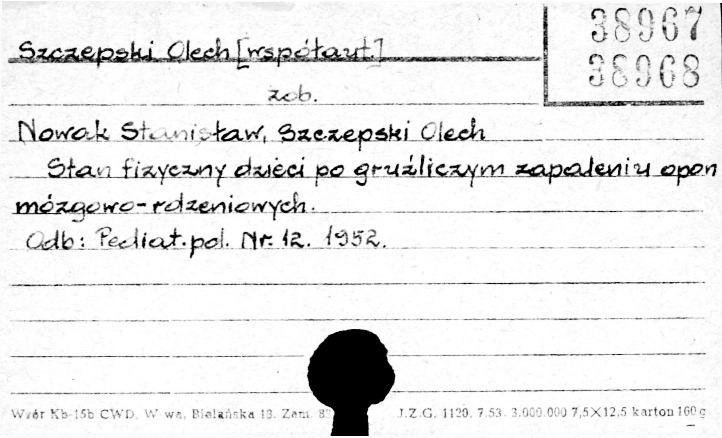 38967
38968
Szczepski Olech [współaut.]
zob.
Nowak Stanisław, Szczepski Olech
Stan fizyczny dzieci po gruźliczym zapaleniu opon
mózgowo-rdzeniowych.
Odb: Pediat.pol. Nr. 12. 1952.
Wzór Kb-15b CWD, W-wa, Bielańska 18. Zam. 8 J.Z.G. 1120. 7.53. 3.000.000 7,5×12,5 karton 160 g